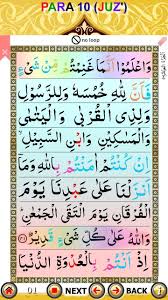 PARA 10 (JUZ')
no loop
وَاعْلَمُوْٓا اَنَّمَا غَنِمْتُمْ مِّنْ شَیْءٍ
فَاَنَّ لِلّٰهِ خُمُسَهٗ وَلِلرَّسُوْلِ
وَلِذِی الْقُرْبٰی وَالْیَتٰمٰی
وَالْمَسٰكِیْنِ وَابْنِ السَّبِیْلِ
اِنْ كُنْتُمْ اٰمَنْتُمْ بِاللّٰهِ وَمَآ
اَنْزَلْنَا عَلٰی عَبْدِنَا یَوْمَ
الْفُرْقَانِ یَوْمَ الْتَقَی الْجَمْعٰنِ
وَاللّٰهُ عَلٰی كُلِّ شَیْءٍ قَدِیْرٌ
اِذْ اَنْتُمْ بِالْعُدْوَةِ الدُّنْیَا
NEXT BACK